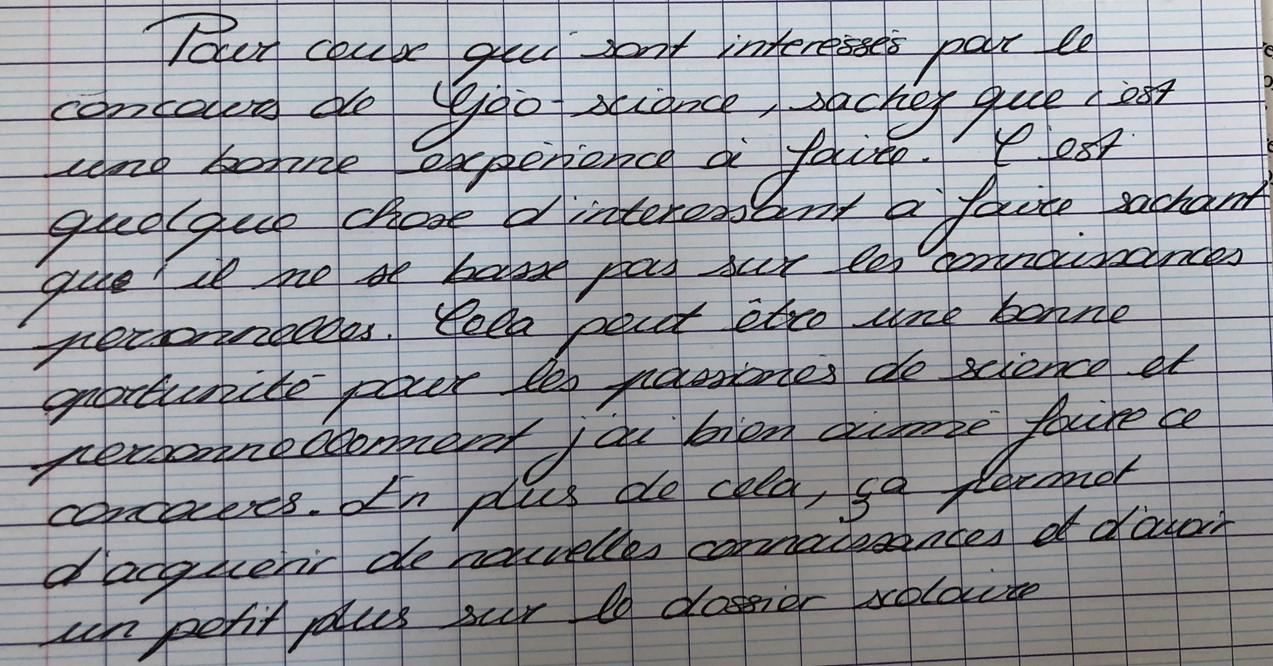 Pour ceux qui sont interessés par le
concours de Géo-science, sachez que c'est
une bonne expérience à faire. C'est
quelque chose d'interessant à faire sachant
que' il ne se basse pas sur les connaissances
personnelles. Cela peut être une bonne
oportunité pour les passionés de science et
personnellemment j'ai bien aimmé faire ce
concours. En plus de cela, ça permet
d'acquérir de nouvelles connaissances et d'avoir
un petit plus sur le dossier scolaire